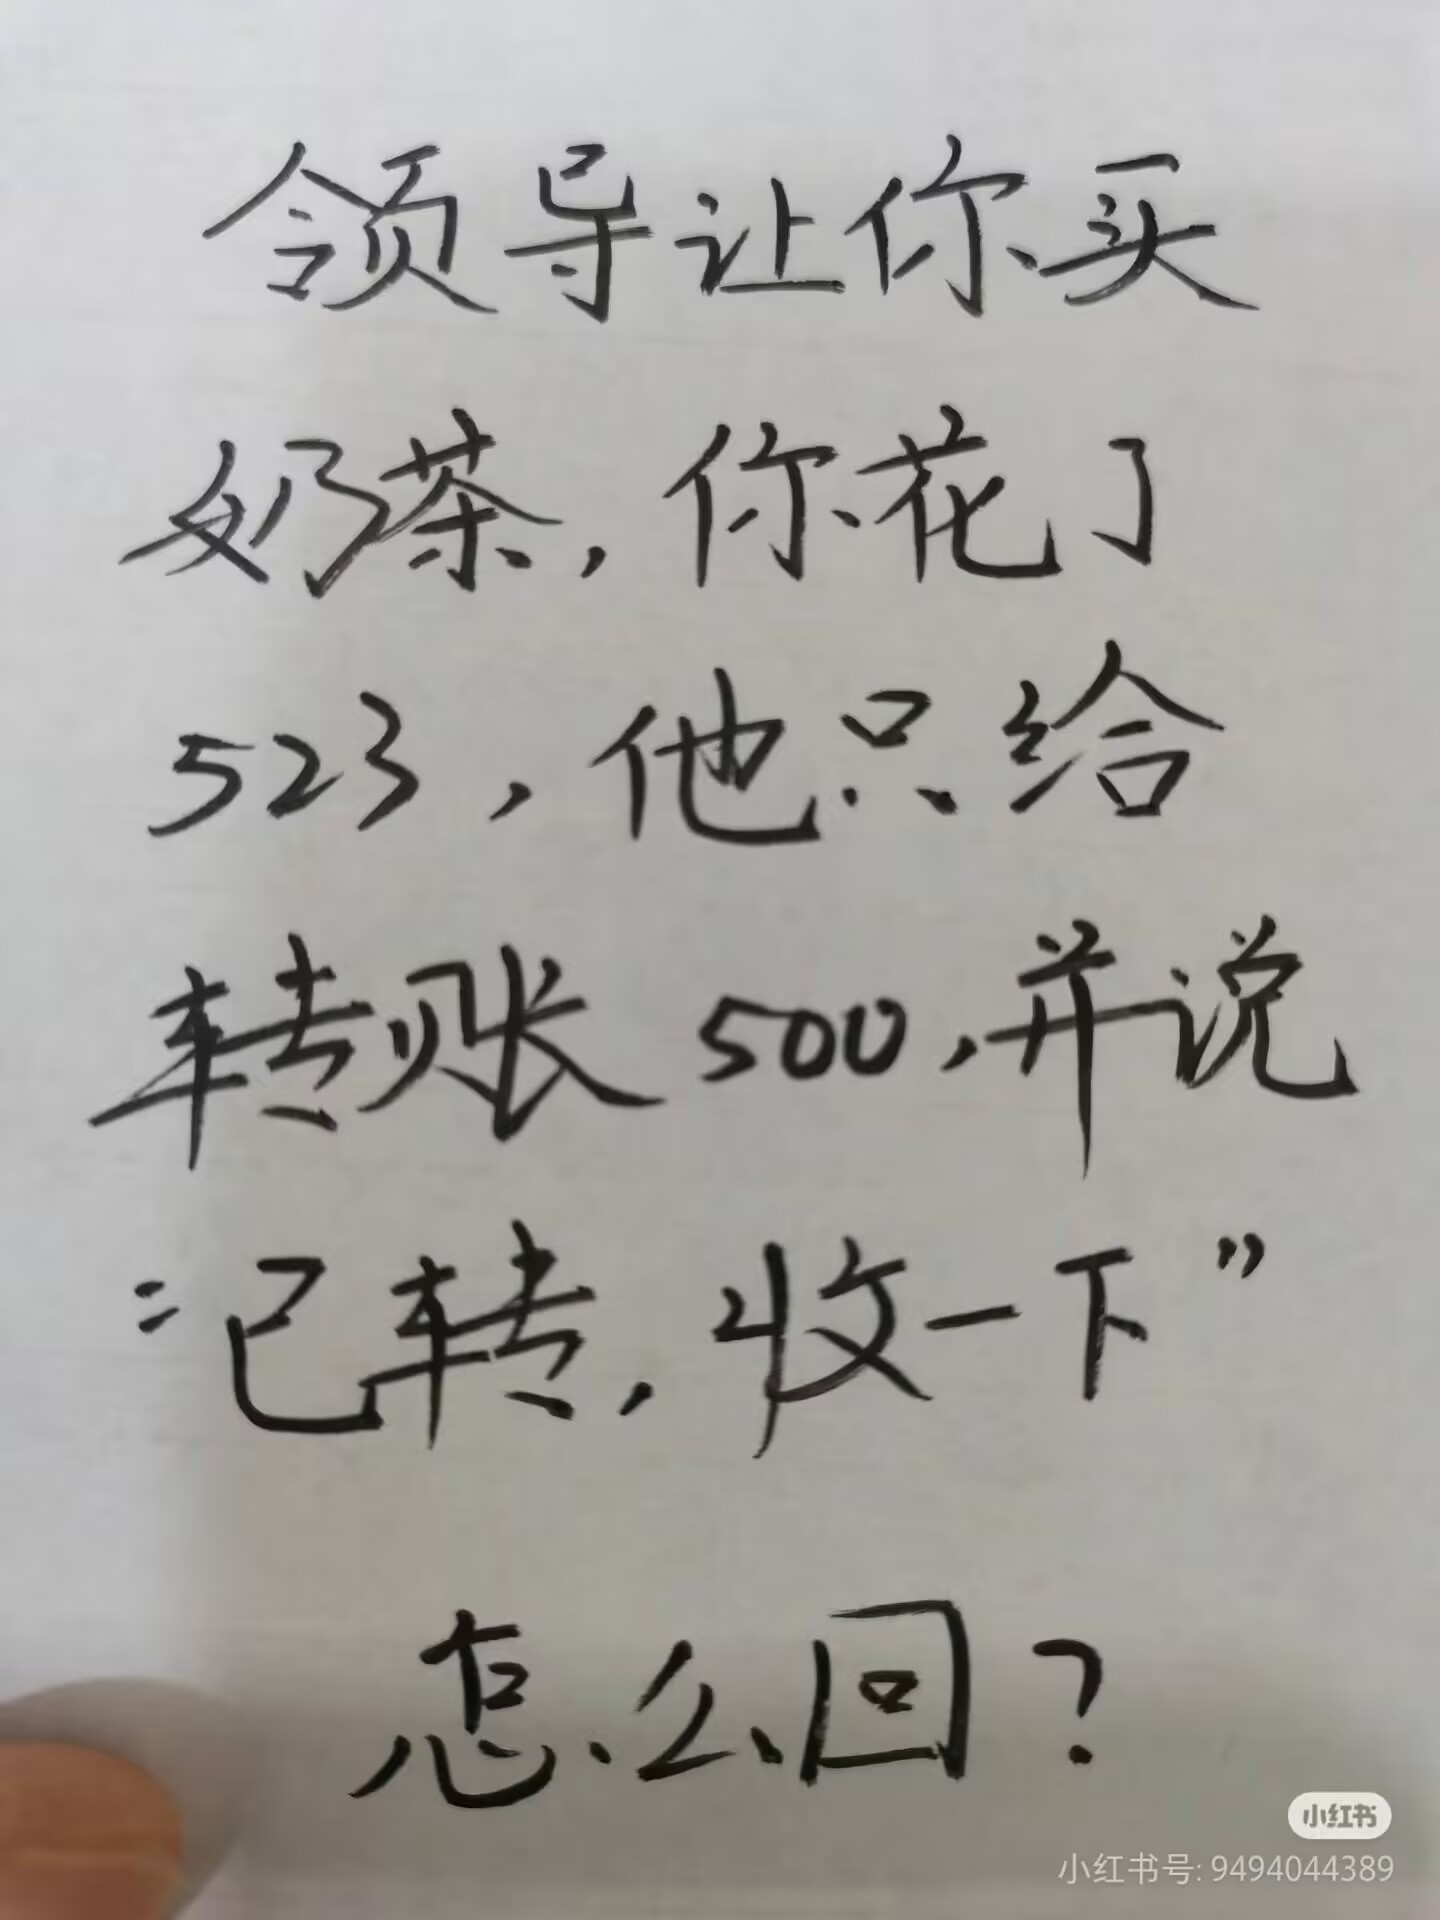 领导让你买
奶茶，你花了
523，他只给
转账500，并说
“已转，收一下”
怎么回？
小红书
小红书号: 9494044389